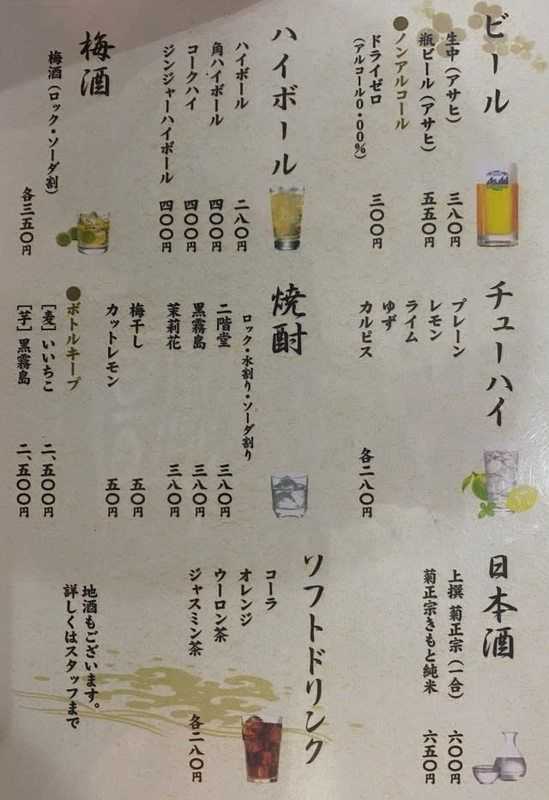 ビール
生中（アサヒ） 三八〇円
瓶ビール（アサヒ） 五五〇円
●ノンアルコール
ドライゼロ 三〇〇円
（アルコール0・00％）
ハイボール
ハイボール 二八〇円
角ハイボール 四〇〇円
コークハイ 四〇〇円
ジンジャーハイボール 四〇〇円
梅酒
梅酒（ロック・ソーダ割） 各三五〇円
チューハイ
プレーン
レモン
ライム
ゆず
カルピス 各二八〇円
焼酎
ロック・水割り・ソーダ割り
二階堂 三八〇円
黒霧島 三八〇円
茉莉花 三八〇円
梅干し 五〇円
カットレモン 五〇円
●ボトルキープ
［麦］いいちこ 二、五〇〇円
［芋］黒霧島 二、五〇〇円
日本酒
上撰 菊正宗（一合） 六〇〇円
菊正宗きもと純米 六五〇円
ソフトドリンク
コーラ
オレンジ
ウーロン茶
ジャスミン茶 各二八〇円
地酒もございます。
詳しくはスタッフまで